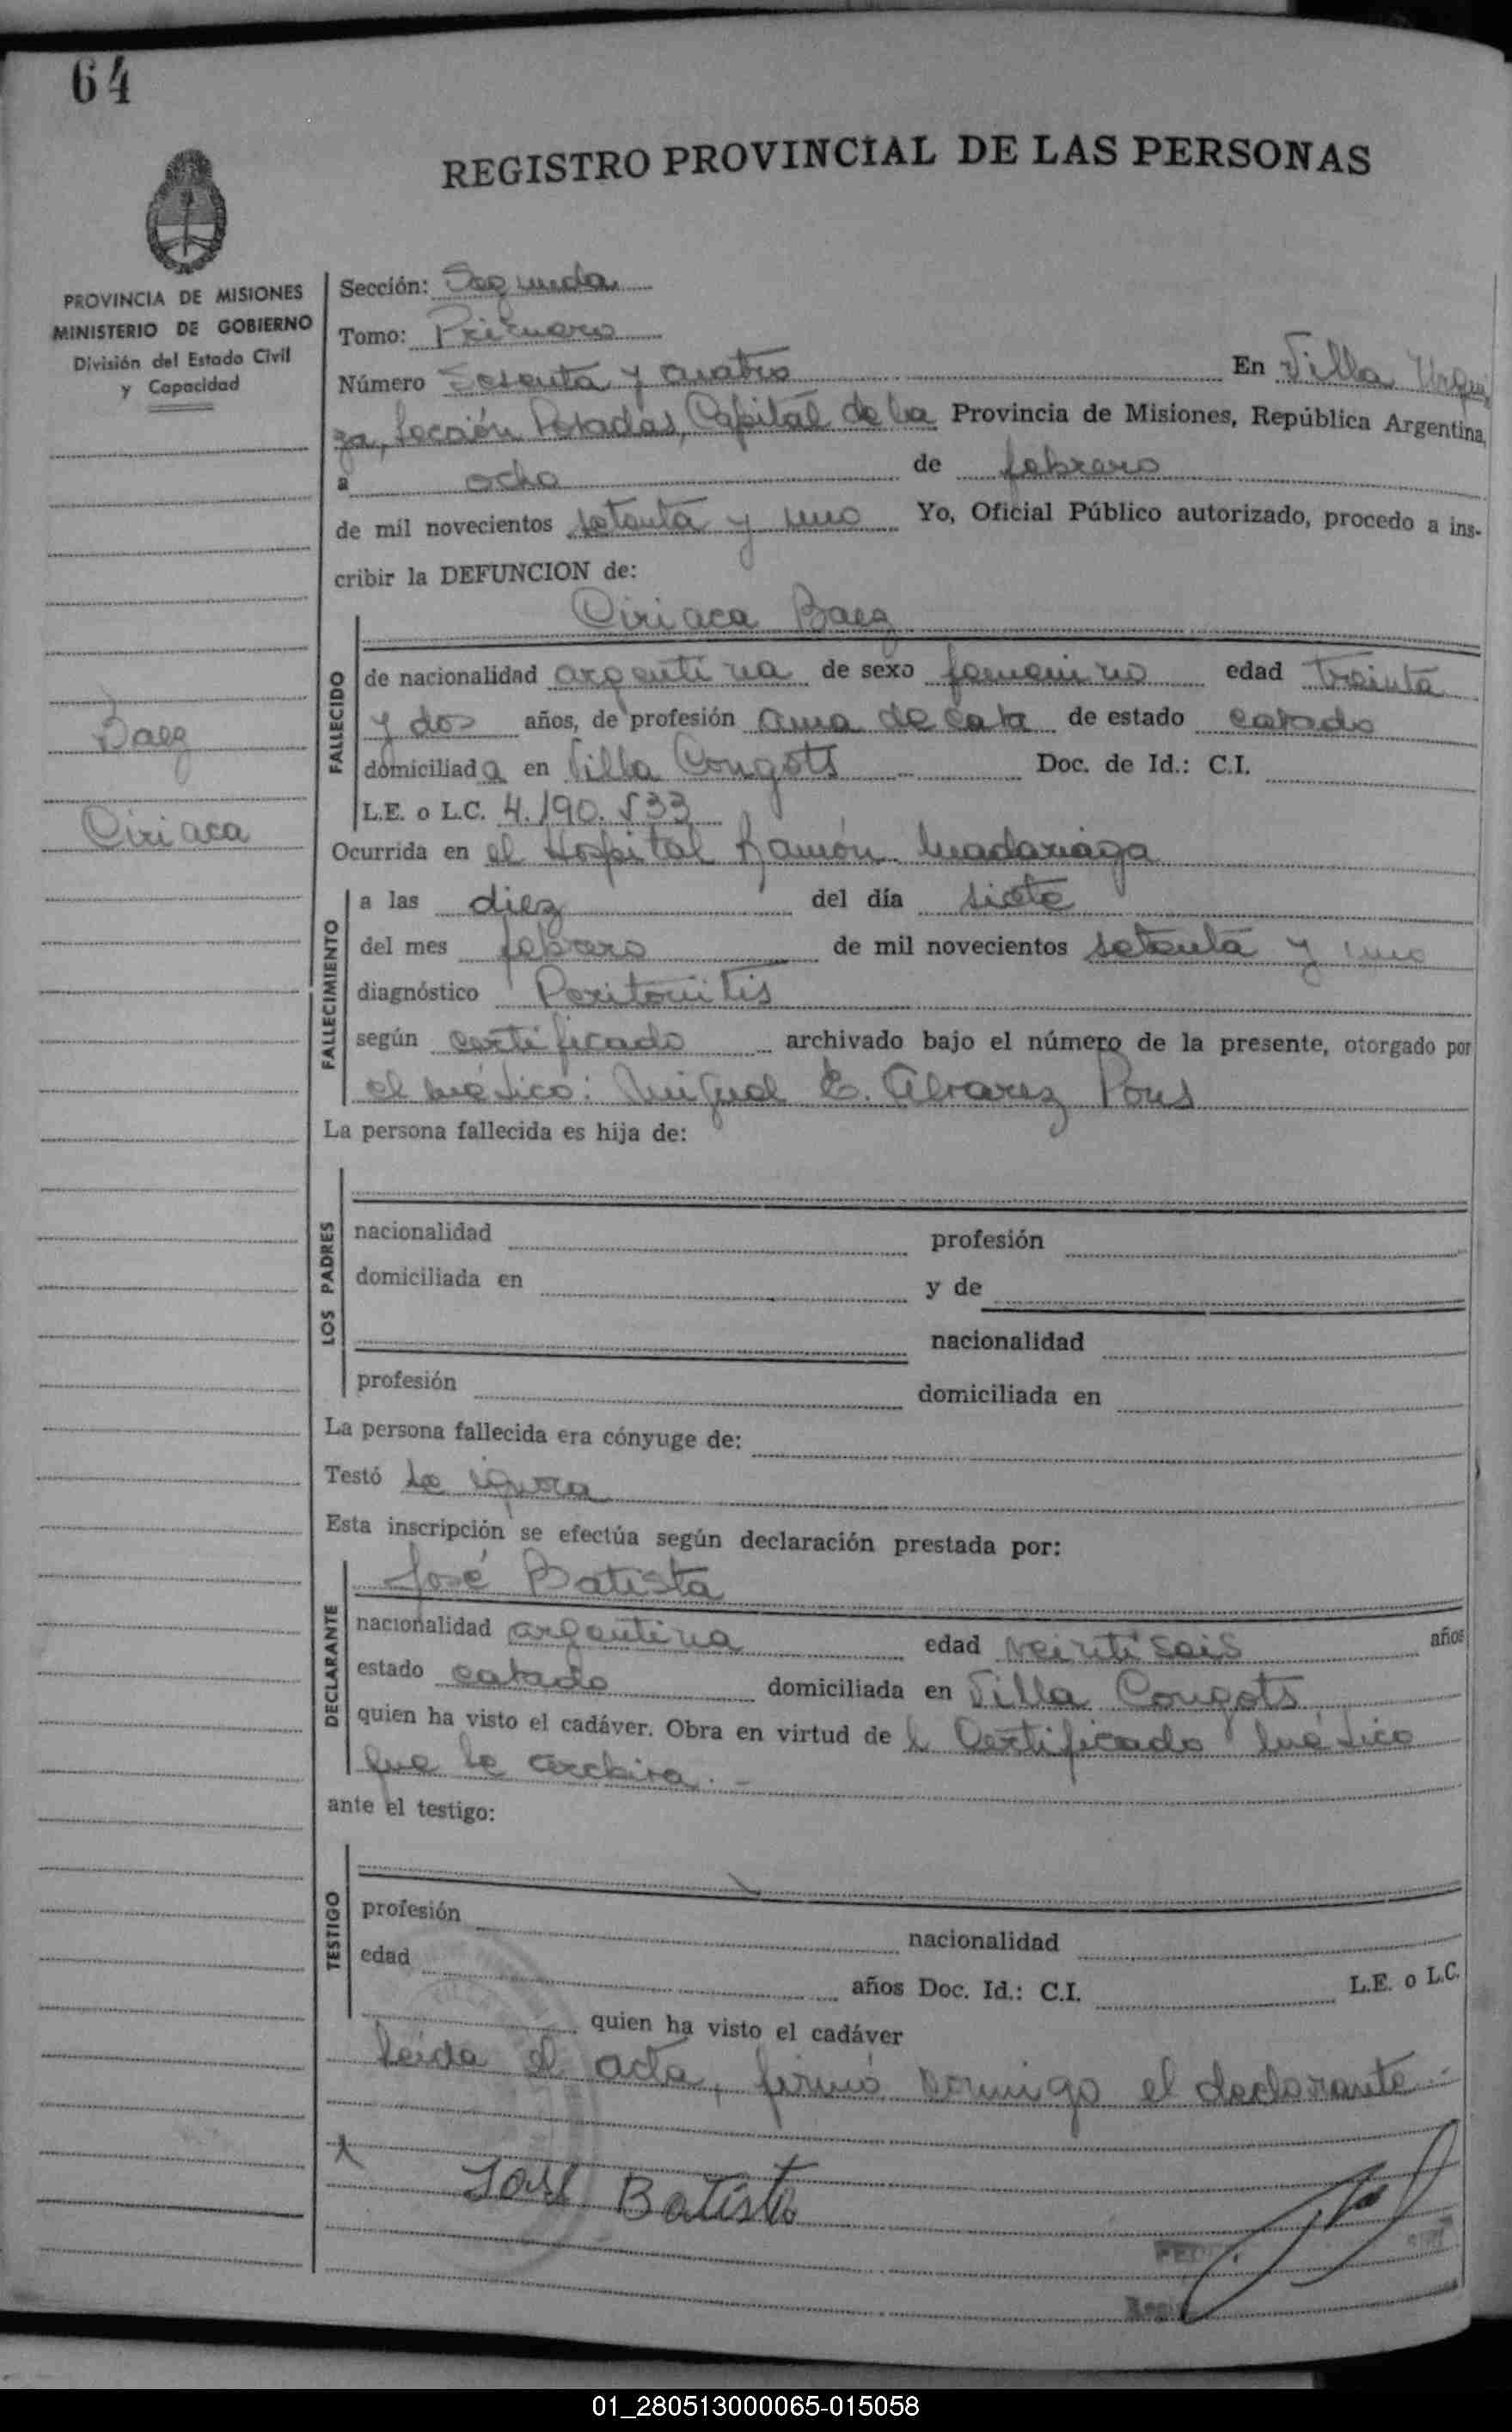 64
REGISTRO PROVINCIAL DE LAS PERSONAS
PROVINCIA DE MISIONES
MINISTERIO DE GOBIERNO
División del Estado Civil
y Capacidad
Baez
Ciriaca
Sección: Segunda
Tomo: Primero
Número Sesenta y cuatro En Villa Urqui
za, Sección Posadas, Capital de la Provincia de Misiones, República Argentina,
a ocho de febrero
de mil novecientos setenta y uno Yo, Oficial Público autorizado, procedo a ins-
cribir la DEFUNCION de:
Ciriaca Baez
FALLECIDO
de nacionalidad argentina de sexo femenino edad treinta
y dos años, de profesión ama de casa de estado casado
domiciliada en Villa Congots Doc. de Id.: C.I.
L.E. o L.C. 4.190.533
Ocurrida en el Hospital Ramón Madariaga
FALLECIMIENTO
a las diez del día siete
del mes febrero de mil novecientos setenta y uno
diagnóstico Peritonitis
según certificado archivado bajo el número de la presente, otorgado por
el médico: Miguel E. Alvarez Pons
La persona fallecida es hija de:
LOS PADRES
nacionalidad profesión
domiciliada en y de
nacionalidad
profesión domiciliada en
La persona fallecida era cónyuge de:
Testó se ignora
Esta inscripción se efectúa según declaración prestada por:
DECLARANTE
José Batista
nacionalidad argentina edad veintiseis años
estado casado domiciliada en Villa Congots
quien ha visto el cadáver. Obra en virtud de l Certificado médico
que se archiva. -
ante el testigo:
TESTIGO
profesión nacionalidad
edad años Doc. Id.: C.I. L.E. o L.C.
quien ha visto el cadáver
Leida el acta, firmó conmigo el declarante.-
José Batista
01_280513000065-015058